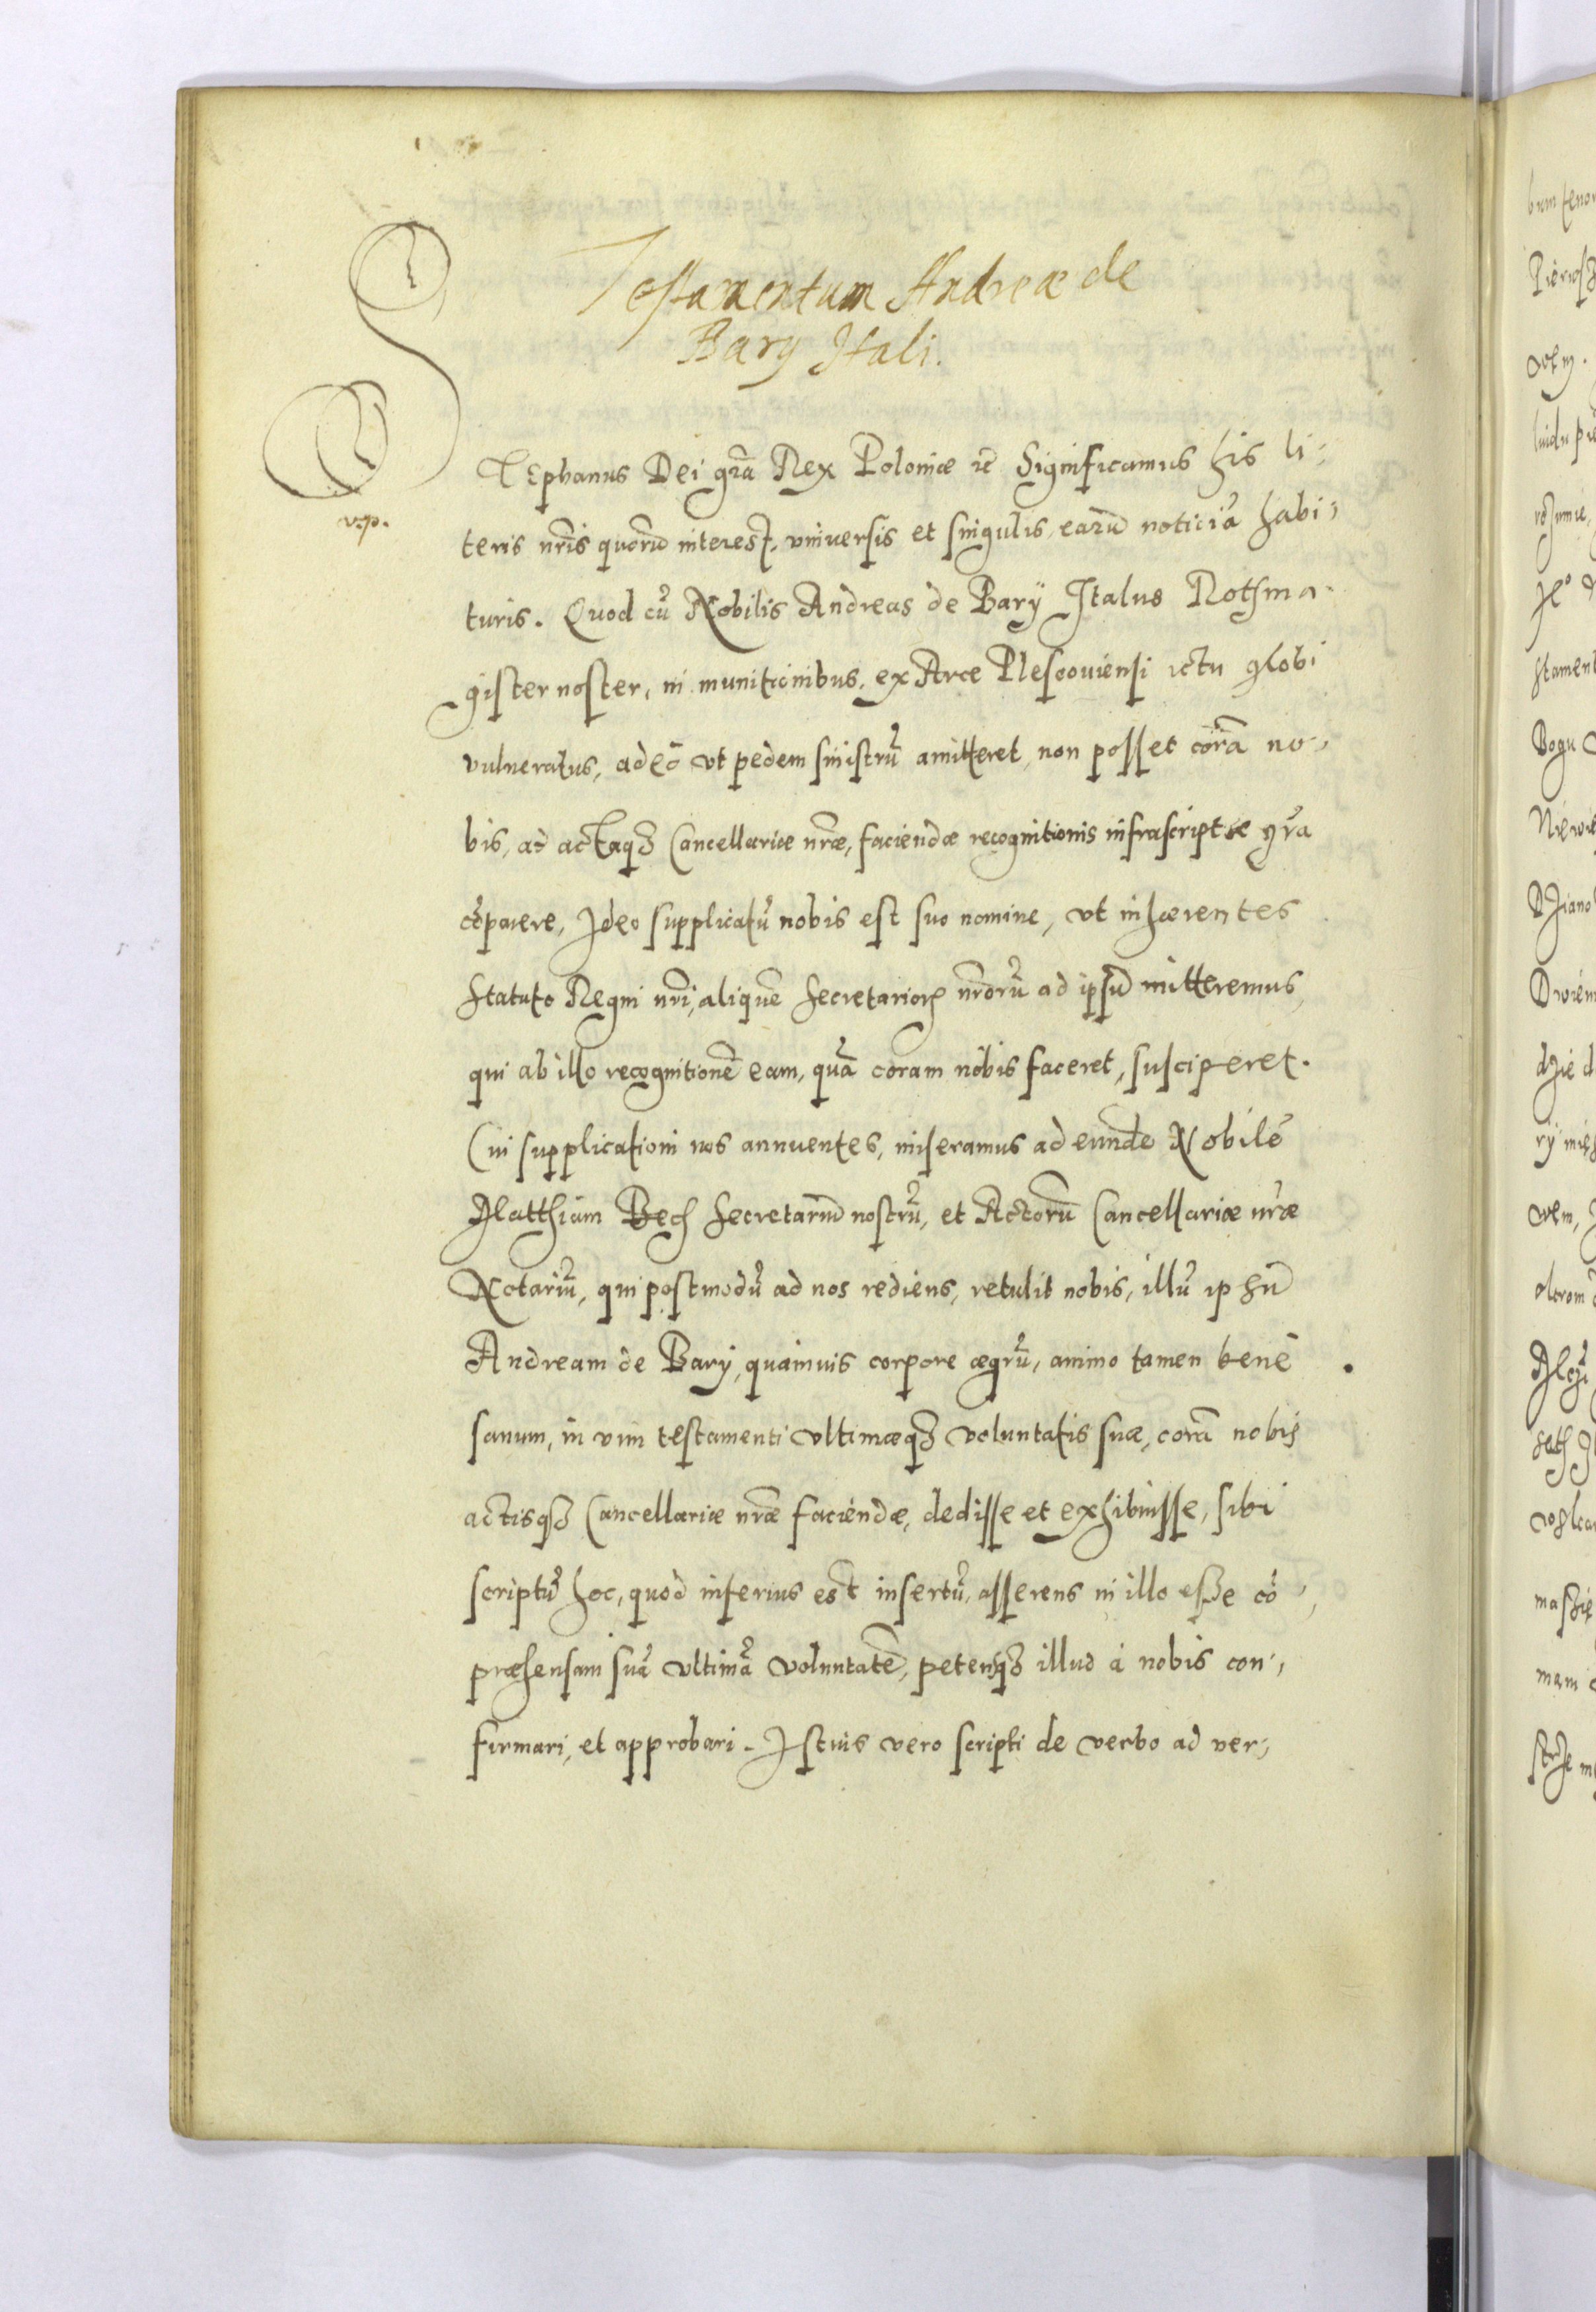 Testamentum Andreæ de
Bary Itali.
STephanus Dei gr̃a Rex Poloniæ ꝛc̃ Significamus his li-
v.p.
teris nr̃is quorũ interest, vniuersis et singulis, earũ noticiã habi-
turis. Quod cũ Nobilis Andreas de Barÿ Italus Rothma-
gister noster, in munitionibus, ex Arce Plescouiensi ictu globi
vulneratus, adeò vt pedem sinistrũ amitteret, non posset corã no-
bis, ad actaqꝫ Cancellariæ nr̃æ, faciendæ recognitionis infrascriptæ gr̃a
cõparere, Ideo supplicatũ nobis est suo nomine, vt inhærentes
statuto Regni nr̃i, aliquẽ secretarioꝝ nr̃orũ ad ipsũ mitteremus,
qui ab illo recognitionẽ eam, quã coram nobis faceret, susciperet.
Cui supplicationi nos annuentes, miseramus ad eundẽ Nobilẽ
Matthiam Bech secretariũ nostrũ, et Actorũ Cancellariæ nr̃æ
Notariũ, qui postmodũ ad nos rediens, retulit nobis, illũ ip sũ
Andream de Barÿ, quamuis corpore ægrũ, animo tamen benè
sanum, in vim testamenti vltimæqꝫ voluntatis suæ, corã nobis
actisqꝫ Cancellariæ nr̃æ faciendæ, dedisse et exhibuisse, sibi
scriptũ hoc, quod inferius est insertũ, asserens in illo esse cõ-
præhensam suã vltimã voluntatẽ, petensqꝫ illud à nobis con-
firmari, et approbari. Istius vero scripti de verbo ad ver-